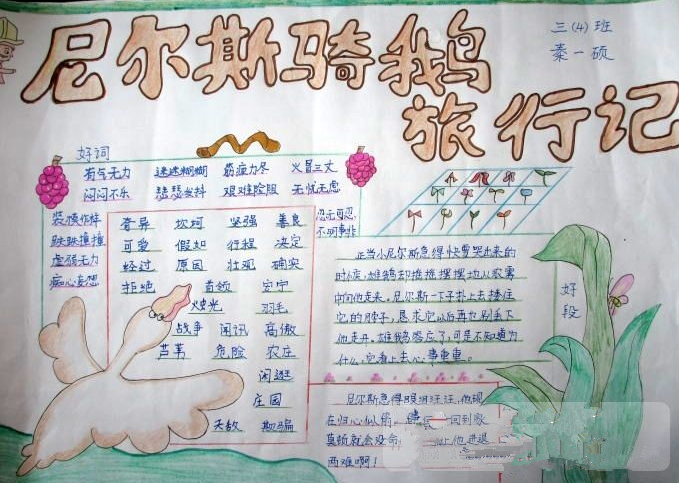 尼尔斯骑鹅
旅行记
三(4)班
秦一硕
好词
有气无力 迷迷糊糊 筋疲力尽 火冒三丈
闷闷不乐 瑟瑟发抖 艰难险阻 无忧无虑
忍无可忍
不明事非
装模作样
跌跌撞撞
虚弱无力
痴心妄想
奇异 坎坷 坚强 善良
可爱 假如 行程 决定
经过 原因 壮观 确实
拒绝 首领 安宁
烛光 羽毛
战争 闻讯 高傲
芦苇 危险 农庄
闲逛
庄园
无数 欺骗
好段
正当小尼尔斯急得快要哭出来的
时候,雄鹅却摇摇摆摆地从农窖
中向他走来,尼尔斯一下子扑上去搂住
它的脖子,恳求它以后再也别丢下
他走开,雄鹅答应了,可是不知道为
什么,它看上去心事重重。
尼尔斯急得眼泪汪汪,他现
在归心似箭, 一回到家
莫顿就会没命, 他进退
两难啊!